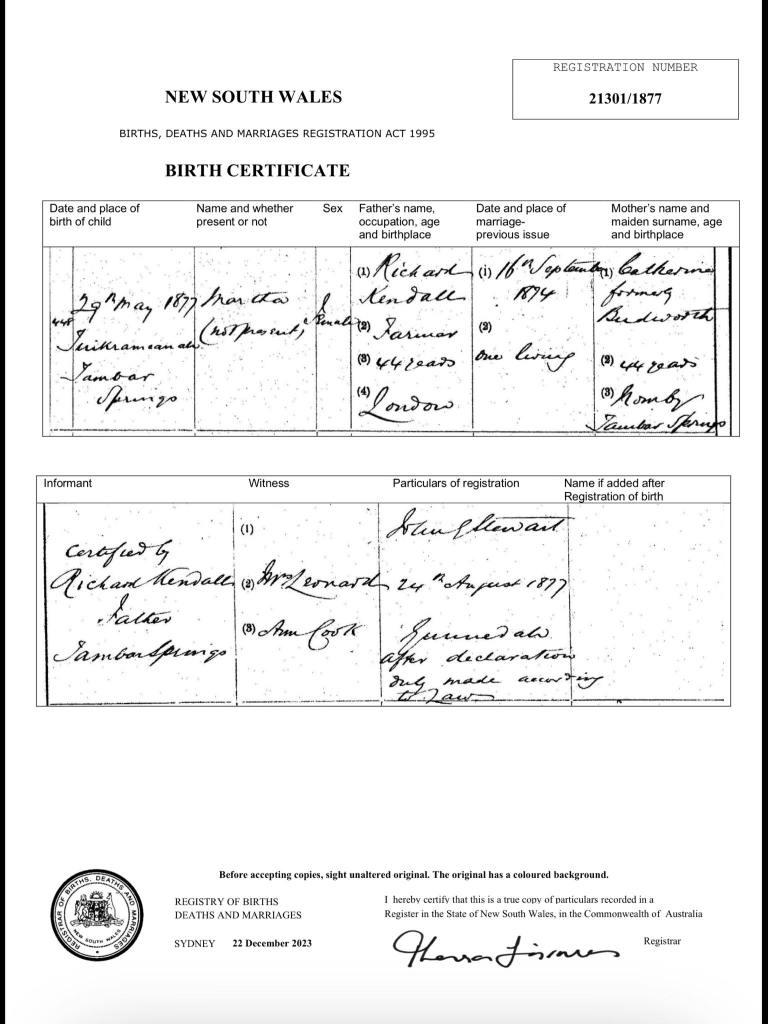 REGISTRATION NUMBER
21301/1877
NEW SOUTH WALES
BIRTHS, DEATHS AND MARRIAGES REGISTRATION ACT 1995
BIRTH CERTIFICATE
Date and place of
birth of child
Name and whether
present or not
Sex
Father's name,
occupation, age
and birthplace
Date and place of
marriage-
previous issue
Mother's name and
maiden surname, age
and birthplace
448
29th May 1877
Tambar
Springs
Martha
(not present)
Female
(1) Richard
Kendall
(2) Farmer
(3) 44 years
(4)
London
(i) 16th September
1874
(2)
one living
(1) Catherine
formerly
Budworth
(2) 44 years
(3)
Tambar Springs
Informant
Witness
Particulars of registration
Name if added after
Registration of birth
Certified by
Richard Kendall
Father
Tambar Springs
(1)
(2) Mrs Leonard
(3) Ann Cook
John G Stewart
24th August 1877
Gunnedah
after declaration
duly made according
to Law
Before accepting copies, sight unaltered original. The original has a coloured background.
REGISTRY OF BIRTHS
DEATHS AND MARRIAGES
SYDNEY 22 December 2023
I hereby certify that this is a true copy of particulars recorded in a
Register in the State of New South Wales, in the Commonwealth of Australia
Registrar
REGISTRAR OF BIRTHS, DEATHS AND MARRIAGES
NEW SOUTH WALES